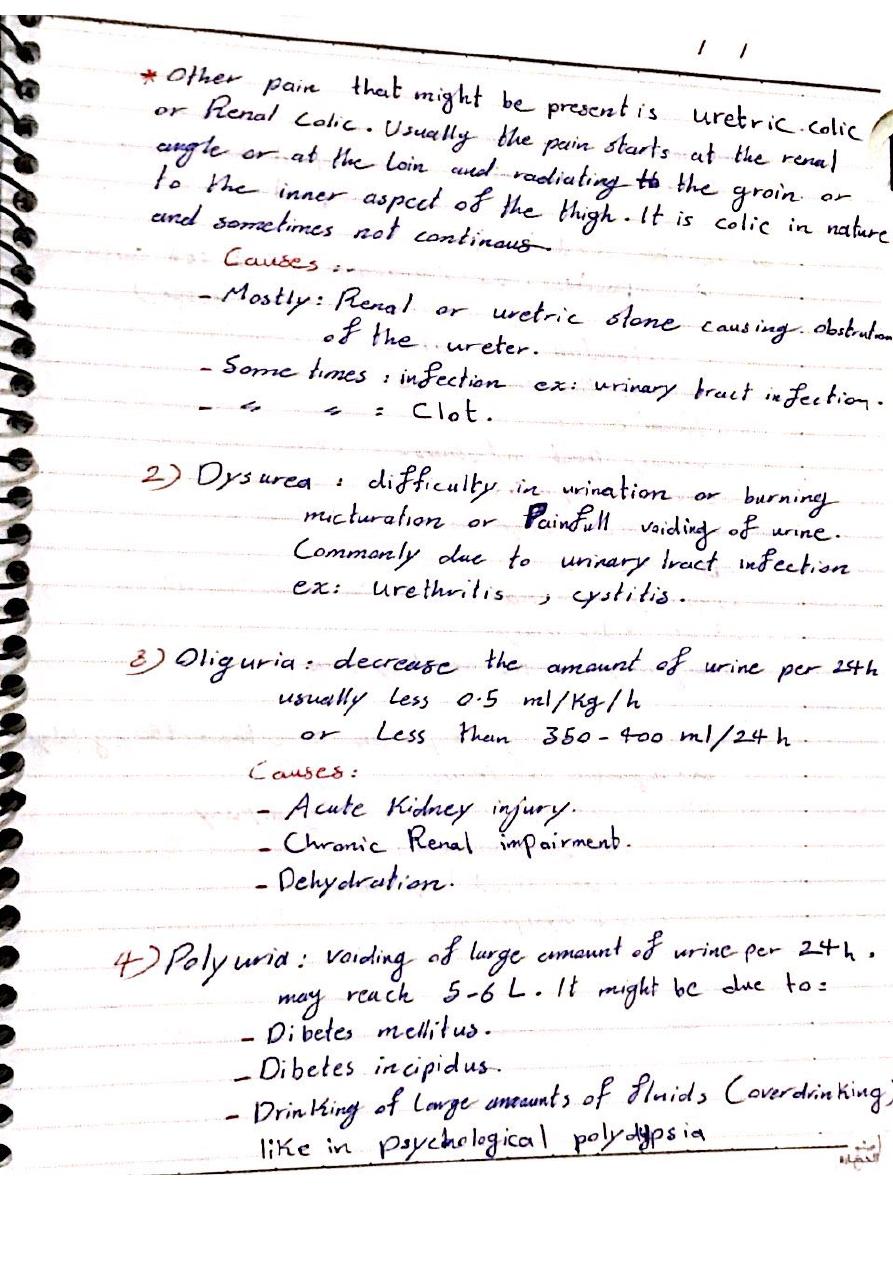 / /
* Other pain that might be present is uretric colic
or Renal Colic. Usually the pain starts at the renal
angle or at the loin and radiating to the groin or
to the inner aspect of the thigh. It is colic in nature
and sometimes not continous
Causes :-
- Mostly: Renal or uretric stone causing obstrution
of the ureter.
- Some times : infection ex: urinary tract infection.
- " " : Clot.
2) Dysurea : difficulty in urination or burning
micturation or Painfull voiding of urine.
Commonly due to urinary tract infection
ex: urethritis , cystitis.
3) Oliguria: decrease the amount of urine per 24h
usually less 0.5 ml/Kg/h
or Less than 350-400 ml/24h
Causes:
- Acute Kidney injury.
- Chronic Renal impairment.
- Dehydration.
4) Polyuria: voiding of large amount of urine per 24h.
may reach 5-6 L. It might be due to:
- Dibetes mellitus.
- Dibetes incipidus.
- Drinking of large amounts of fluids (overdrinking)
like in psychological polydypsia